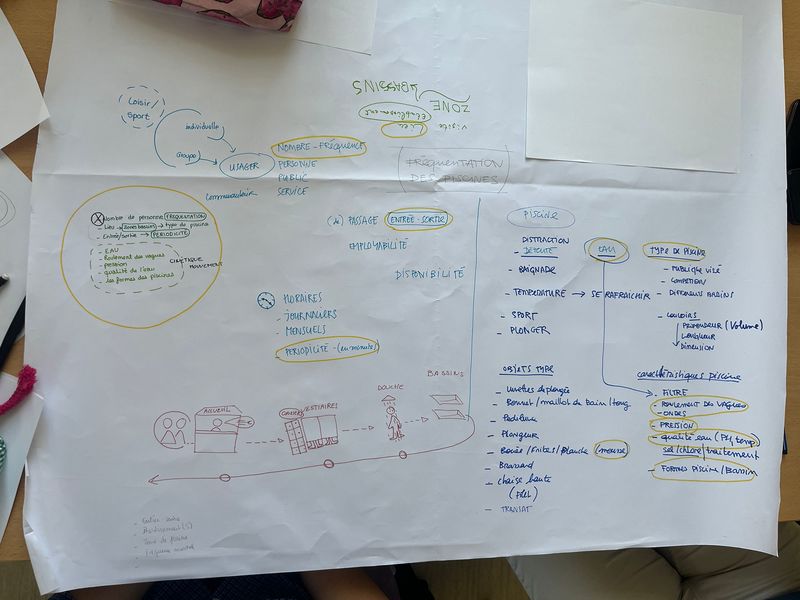 Loisir/
Sport
individuelle
Groupe
USAGER
NOMBRE - FRÉQUENCE
PERSONNE
PUBLIC
SERVICE
Communautaire
BASSINS
ZONE
Etablissement
Lieu
Visite
FRÉQUENTATION
DES PISCINES
Nombre de personne FREQUENTATION
Lieu → Zones bassins → type de piscine
- Entrée/sortie → PERIODICITÉ
- EAU
- Roulement des vagues
- pression
- qualité de l'eau
- les formes des piscines
CINETIQUE
MOUVEMENT
(de) PASSAGE ENTRÉE - SORTIE
EMPLOYABILITÉ
DISPONIBILITÉ
HORAIRES
- JOURNALIERS
- MENSUELS
PERIODICITÉ - (en minute)
ACCUEIL
CASIERS
VESTIAIRES
DOUCHE
BASSINS
PISCINE
DISTRACTION
- DETENTE
- BAIGNADE
- TEMPERATURE → SE RAFRAICHIR
- SPORT
- PLONGER
EAU
TYPE DE PISCINE
- PUBLIQUE VILLE
- COMPETION
- DIFFERENTS BASSINS
- COULOIRS
PROFONDEUR (Volume)
LONGUEUR
DIMENSION
OBJETS TYPE
- Lunettes de plongée
- Bonnet/maillot de bain/tong
- Pediluve
- Plongeur
- Bouée/Frites/Planche (mousse)
- Brassard
- chaise haute
- TRANSAT
caractéristiques piscine
- FILTRE
- ROULEMENT DES VAGUES
- ONDES
- PRESSION
- qualité eau (PH, temp)
sel/chlore/traitement
- FORMES PISCINE/Bassin